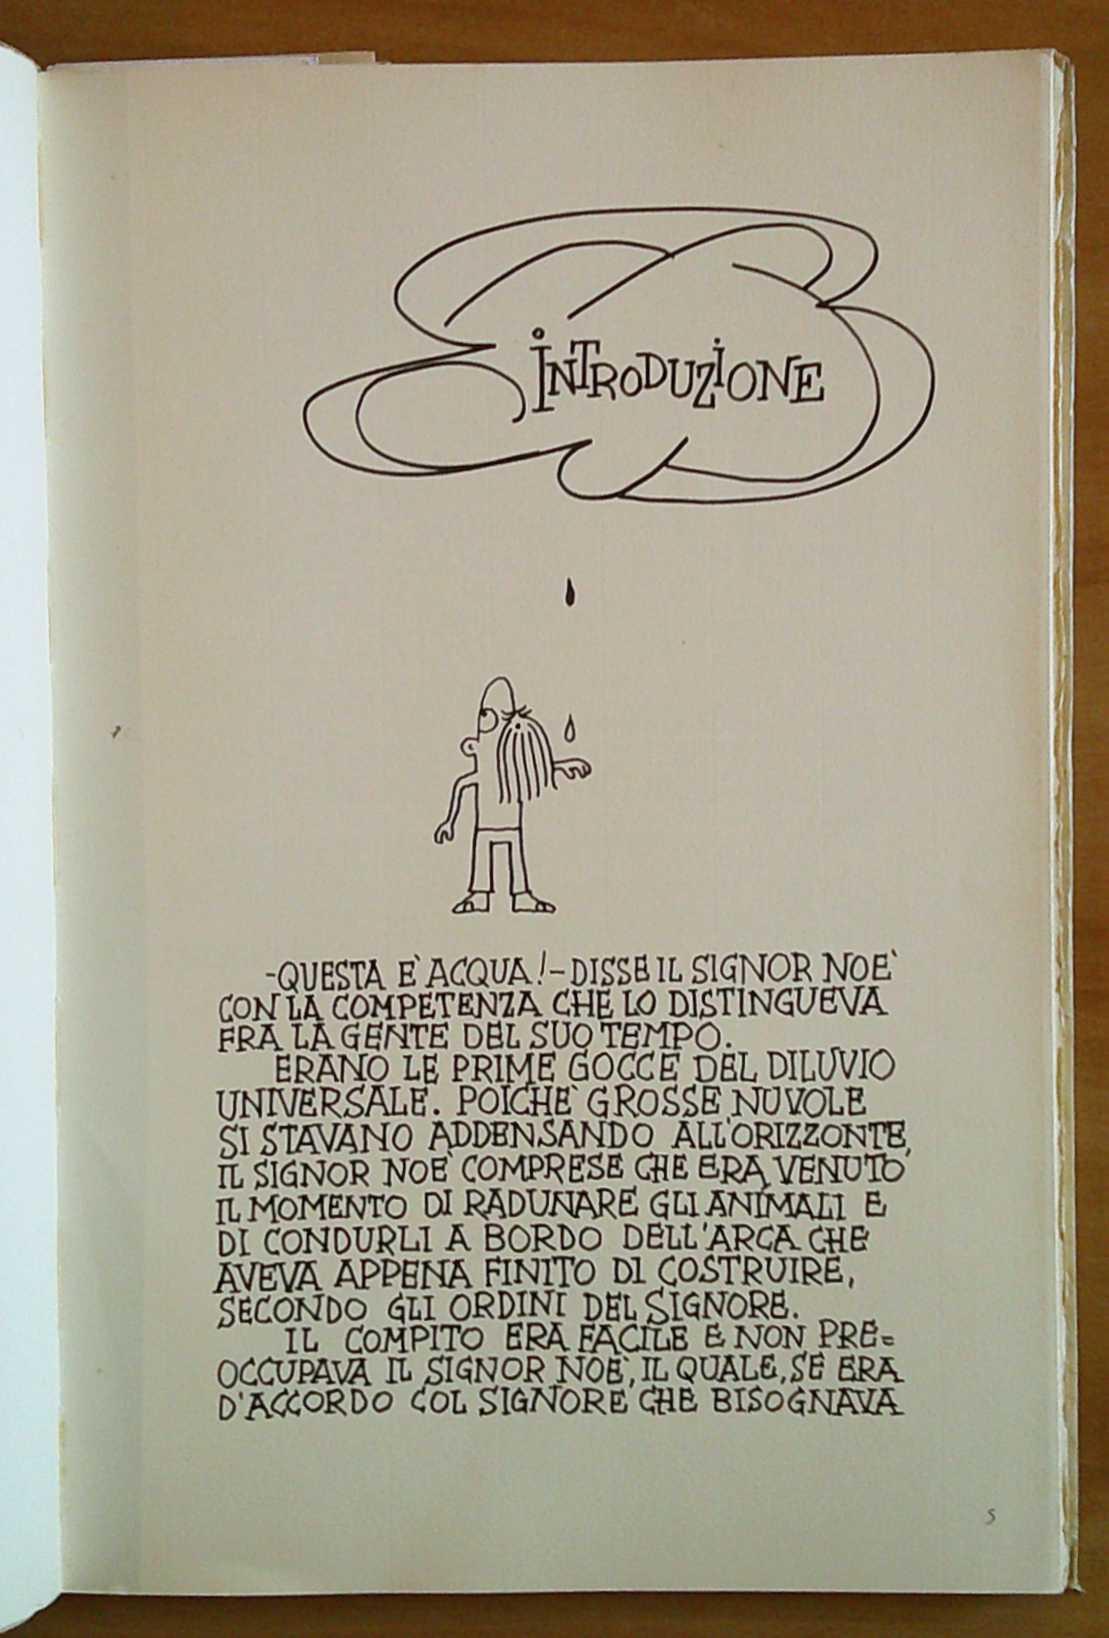 INTRODUZIONE
-QUESTA E' ACQUA!- DISSE IL SIGNOR NOE'
CON LA COMPETENZA CHE LO DISTINGUEVA
FRA LA GENTE DEL SUO TEMPO.
ERANO LE PRIME GOCCE DEL DILUVIO
UNIVERSALE. POICHE' GROSSE NUVOLE
SI STAVANO ADDENSANDO ALL'ORIZZONTE,
IL SIGNOR NOE' COMPRESE CHE ERA VENUTO
IL MOMENTO DI RADUNARE GLI ANIMALI E
DI CONDURLI A BORDO DELL'ARCA CHE
AVEVA APPENA FINITO DI COSTRUIRE,
SECONDO GLI ORDINI DEL SIGNORE.
IL COMPITO ERA FACILE E NON PRE=
OCCUPAVA IL SIGNOR NOE', IL QUALE, SE ERA
D'ACCORDO COL SIGNORE CHE BISOGNAVA
5